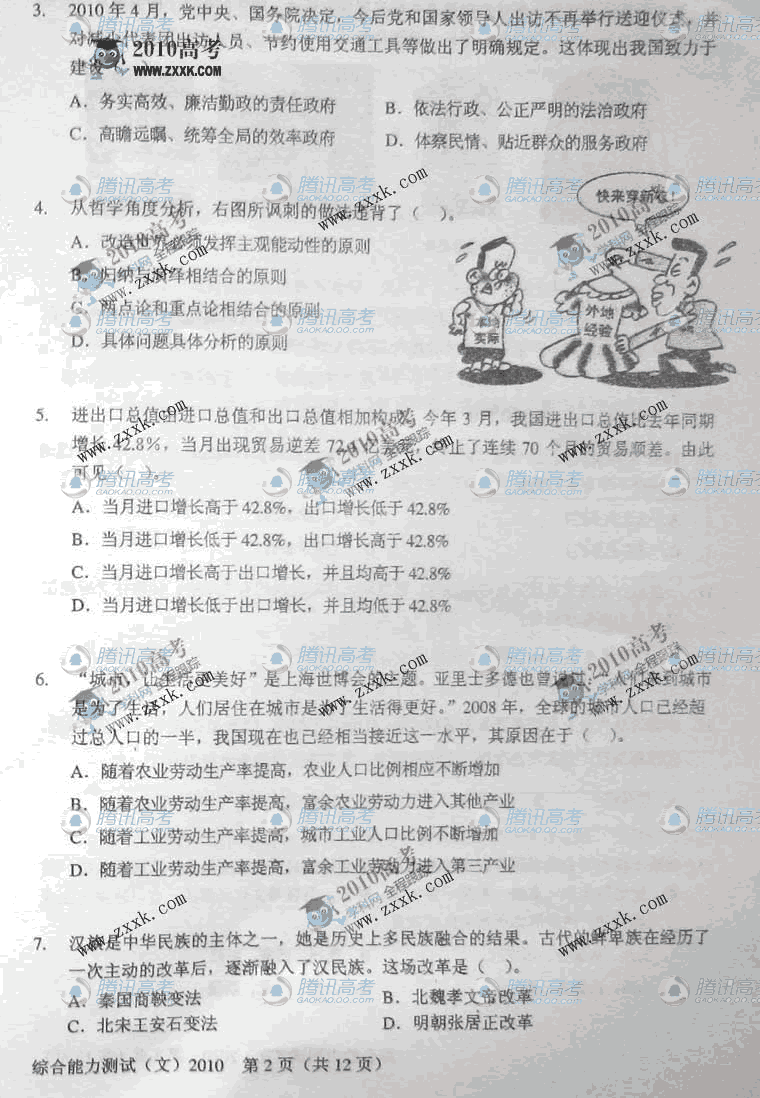 3. 2010 年 4 月，党中央、国务院决定，今后党和国家领导人出访不再举行送迎仪式，并
对减少代表团出访人员、节约使用交通工具等做出了明确规定。这体现出我国致力于
建设（ ）
A．务实高效、廉洁勤政的责任政府 B．依法行政、公正严明的法治政府
C．高瞻远瞩、统筹全局的效率政府 D．体察民情、贴近群众的服务政府
快来穿新衣！
4. 从哲学角度分析，右图所讽刺的做法违背了（ ）。
A．改造世界必须发挥主观能动性的原则
B．归纳与演绎相结合的原则
C．两点论和重点论相结合的原则
D．具体问题具体分析的原则
本地
实际
外地
经验
5. 进出口总值由进口总值和出口总值相加构成。今年 3 月，我国进出口总值比去年同期
增长 42.8%，当月出现贸易逆差 72. 亿美元，中止了连续 70 个月的贸易顺差。由此
可见（ ）
A．当月进口增长高于 42.8%，出口增长低于 42.8%
B．当月进口增长低于 42.8%，出口增长高于 42.8%
C．当月进口增长高于出口增长，并且均高于 42.8%
D．当月进口增长低于出口增长，并且均低于 42.8%
6. “城市，让生活更美好”是上海世博会的主题。亚里士多德也曾说过：“人们来到城市
是为了生活，人们居住在城市是为了生活得更好。”2008 年，全球的城市人口已经超
过总人口的一半，我国现在也已经相当接近这一水平，其原因在于（ ）。
A．随着农业劳动生产率提高，农业人口比例相应不断增加
B．随着农业劳动生产率提高，富余农业劳动力进入其他产业
C．随着工业劳动生产率提高，城市工业人口比例不断增加
D．随着工业劳动生产率提高，富余工业劳动力进入第三产业
7. 汉族是中华民族的主体之一，她是历史上多民族融合的结果。古代的鲜卑族在经历了
一次主动的改革后，逐渐融入了汉民族。这场改革是（ ）。
A．秦国商鞅变法 B．北魏孝文帝改革
C．北宋王安石变法 D．明朝张居正改革
综合能力测试（文）2010 第 2 页（共 12 页）
2010高考
www.zxxk.com
学科网 全程跟踪
腾讯高考
GAOKAO.QQ.COM